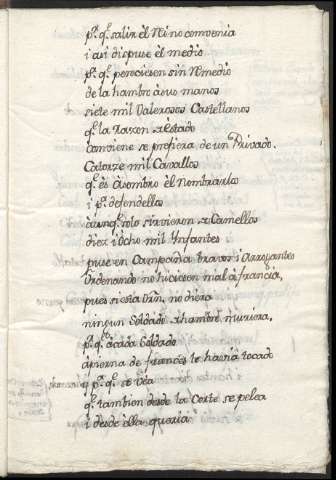 pᵃ. qᵉ. salir él Ni no convenia
i asi dispuse el medio
pᵃ. qᵉ. pereciesen sin Remedio
de la hambre à sus manos
siete mil Valerosos Castellanos
qᵉ. la Razon de estado
combiene se prefiera de un Privado.
Catorze mil Cavallos
qᵉ. és àsombro él nombrarlos
i pᵃ. defendellos
àunqᵉ. solo sirvieron de Camellos
diez i òcho mil Ynfantes
puse en Campaña bravos i Arrogantes
Ordenando no hiciesen mal à francia,
pues si esta òrn. no diera
ningun Soldado de hambre muriera,
pᵃ. qᵉ. à cada Soldado
à pierna de frances le havia tocado
i pᵃ. qᵉ. se vea
qᵉ. tambien desde la Corte se pelea
i desde élla queria